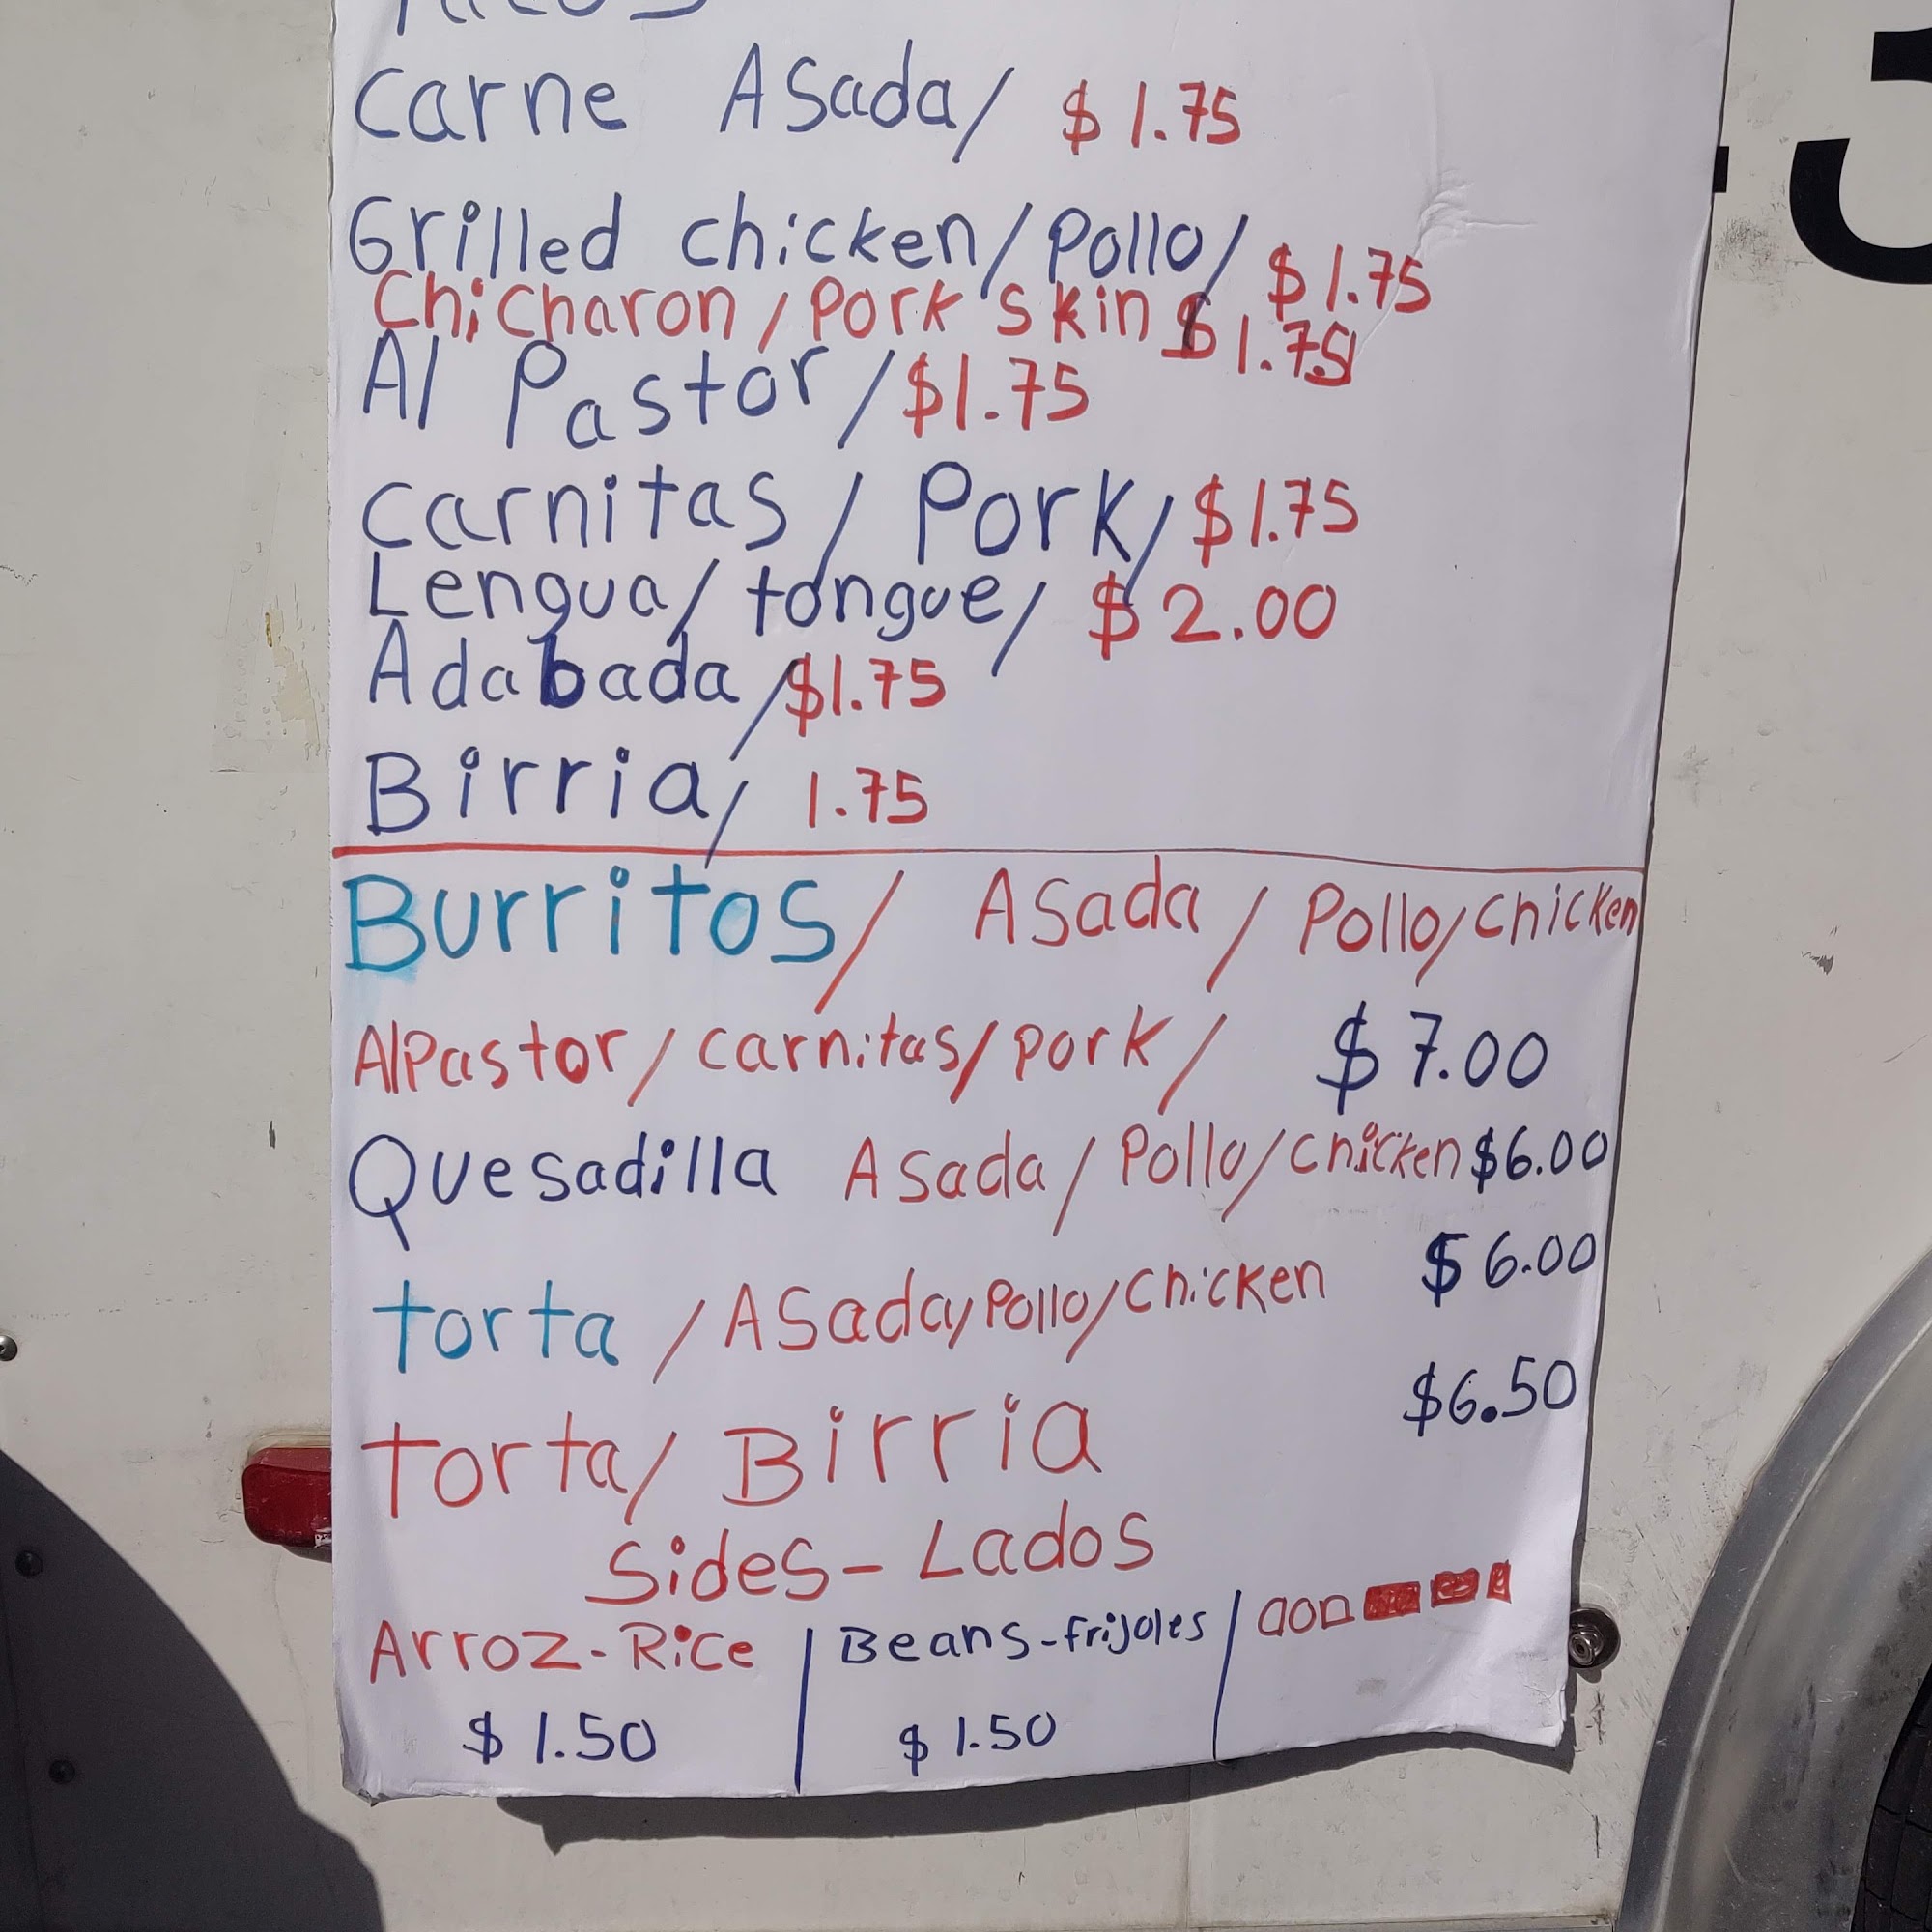 Tacos
Carne Asada/ $1.75
Grilled chicken/Pollo/ $1.75
Chicharon/Pork Skin $1.75
Al Pastor/$1.75
Carnitas/Pork/$1.75
Lengua/tongue/ $2.00
Adabada/$1.75
Birria/ 1.75
Burritos/ Asada/Pollo/Chicken
AlPastor/Carnitas/pork/ $7.00
Quesadilla Asada/Pollo/Chicken $6.00
torta/Asada/Pollo/Chicken $6.00
torta/Birria $6.50
Sides-Lados
Arroz-Rice | Beans-frijoles |
$1.50 | $1.50